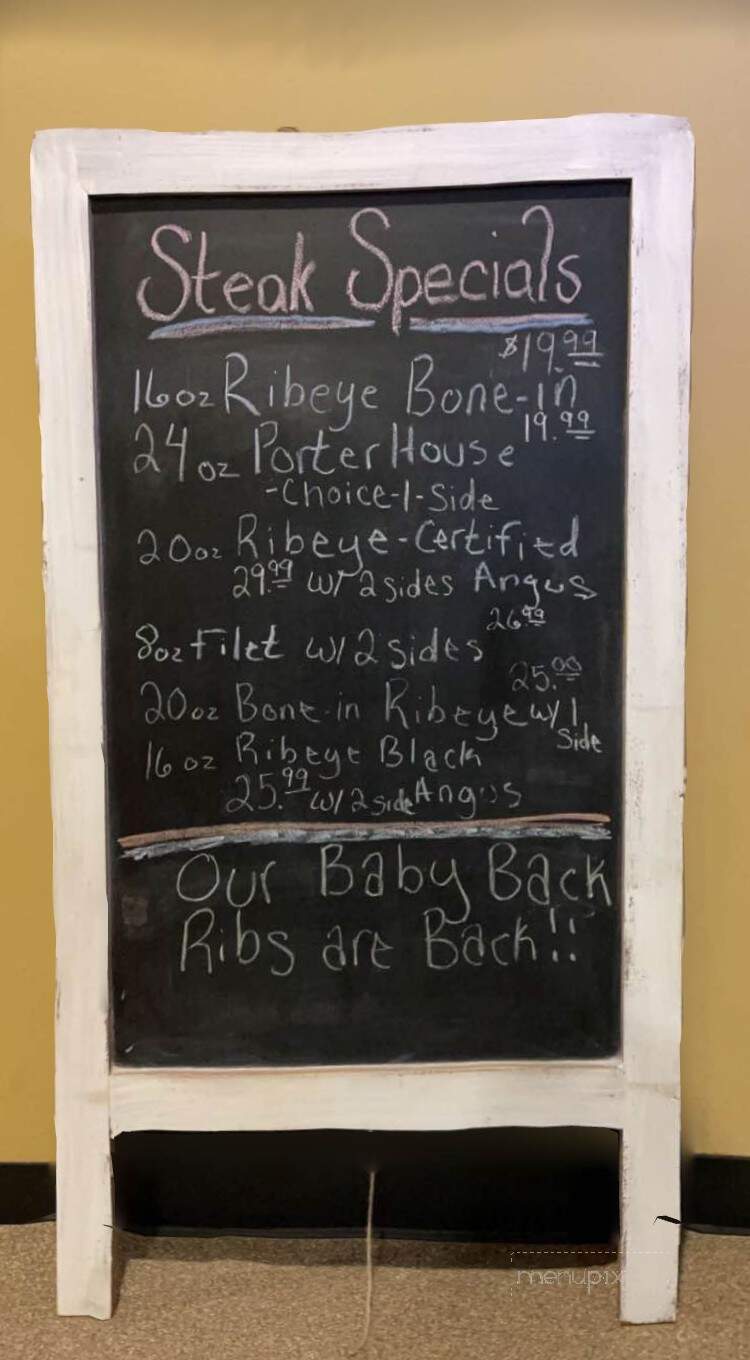 Steak Specials
$19.99
16oz Ribeye Bone-in
19.99
24oz Porter House
-Choice-1-Side
20oz Ribeye-Certified
29.99 w/ 2 sides Angus
26.99
8oz Filet w/ 2 sides
25.00
20oz Bone-in Ribeye w/ 1
Side
16oz Ribeye Black
25.99 w/ 2 side Angus
Our Baby Back
Ribs are Back!!
menupix